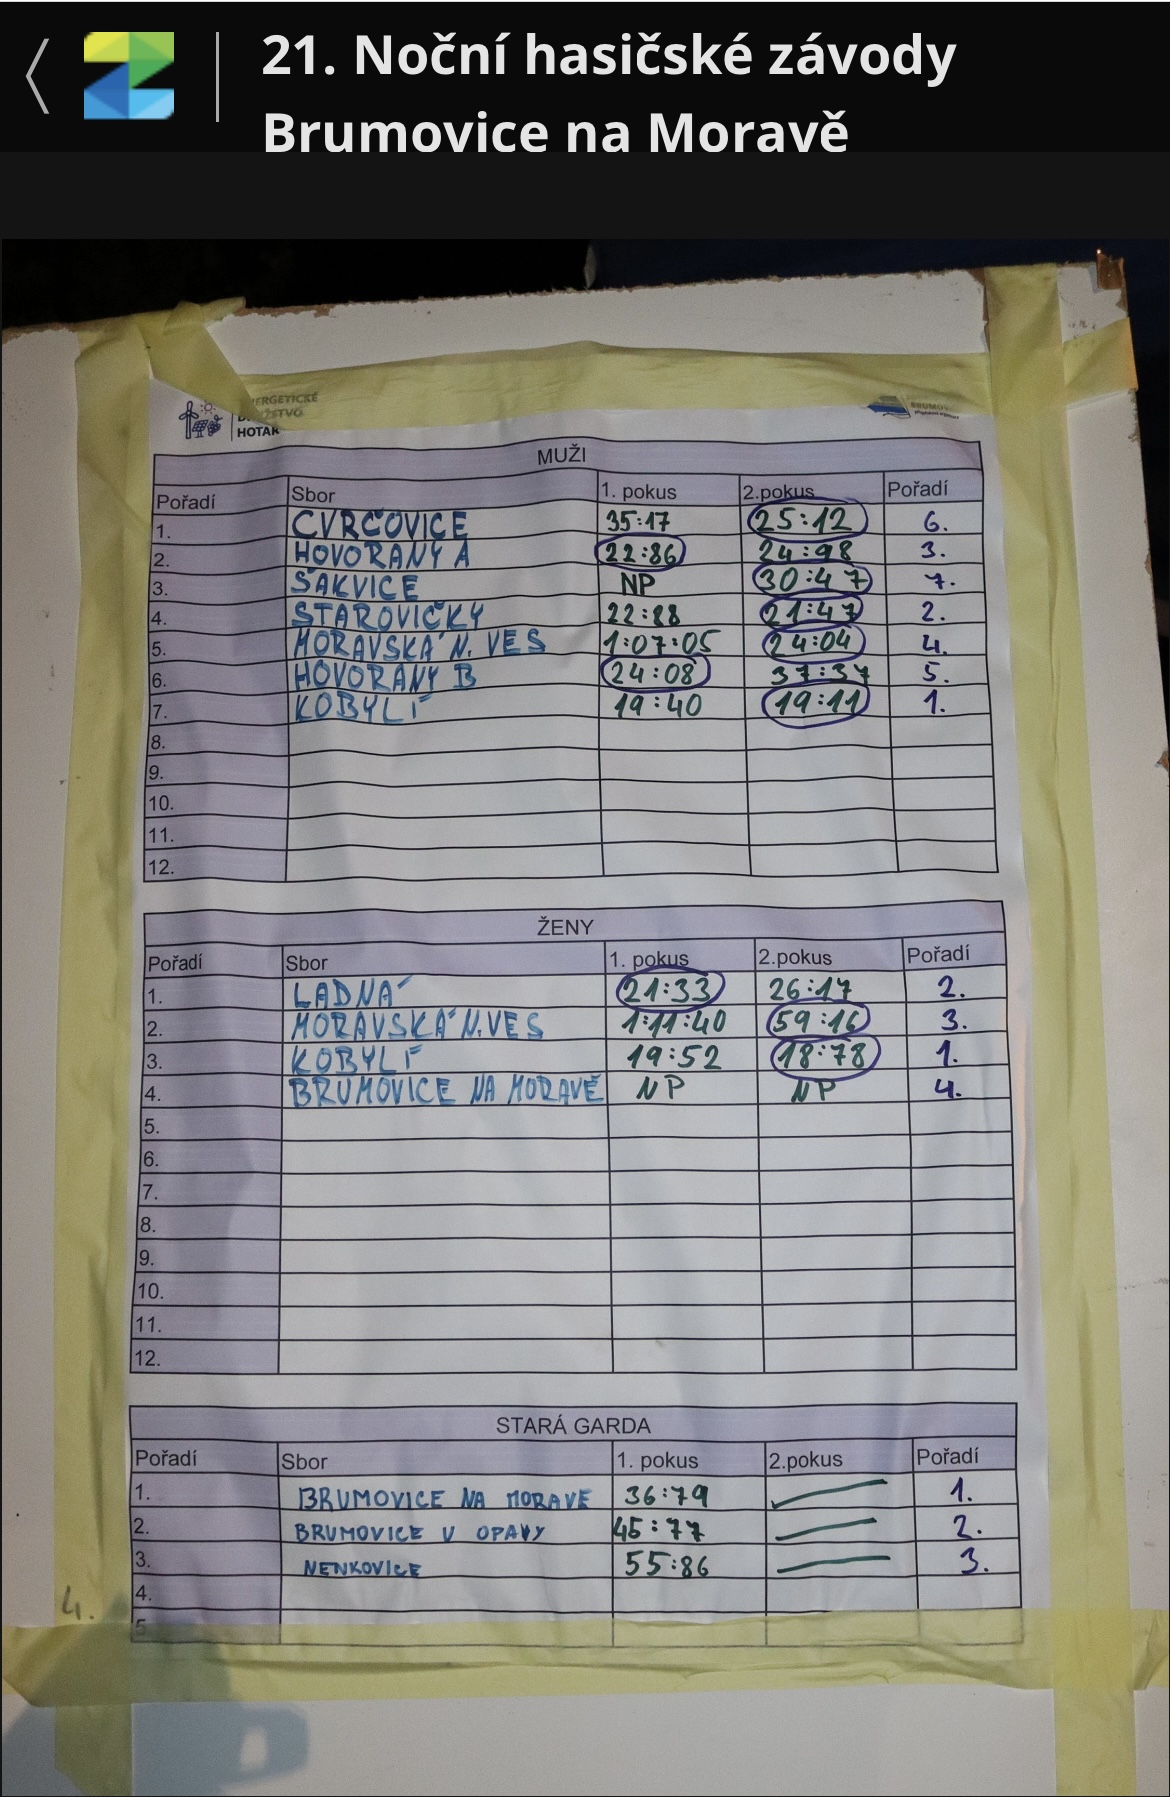 21. Noční hasičské závody
Brumovice na Moravě
DRUŽSTVO
HOTAR
MUŽI
Pořadí Sbor 1. pokus 2.pokus Pořadí
1. CVRČOVICE 35:17 25:12 6.
2. HOVORANY A 22:86 24:98 3.
3. ŠAKVICE NP 30:47 7.
4. STAROVIČKY 22:88 21:47 2.
5. MORAVSKÁ N. VES 1:07:05 24:04 4.
6. HOVORANY B 24:08 37:37 5.
7. KOBYLÍ 19:40 19:11 1.
8.
9.
10.
11.
12.
ŽENY
Pořadí Sbor 1. pokus 2.pokus Pořadí
1. LADNÁ 21:33 26:17 2.
2. MORAVSKÁ N.VES 1:11:40 59:16 3.
3. KOBYLÍ 19:52 18:78 1.
4. BRUMOVICE NA MORAVĚ NP NP 4.
5.
6.
7.
8.
9.
10.
11.
12.
STARÁ GARDA
Pořadí Sbor 1. pokus 2.pokus Pořadí
1. BRUMOVICE NA MORAVE 36:79 1.
2. BRUMOVICE U OPAVY 45:77 2.
3. NENKOVICE 55:86 3.
4.
5.
4.